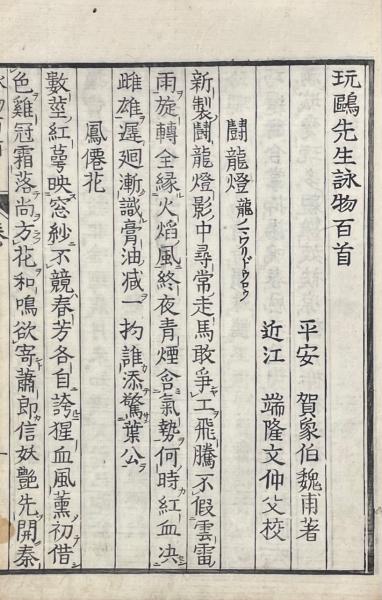 玩鷗先生詠物百首
平安　賀象伯魏甫著
近江　端隆文仲父校
鬪龍燈 龍ノマワリドウロウ
新製鬪龍燈影中尋常走馬敢爭工飛騰不假雲雷
雨旋轉全緣火焰風終夜青煙含氣勢何時紅血決
雌雄遲廻漸識膏油減一拘誰添驚葉公
鳳僊花
數莖紅萼映窓紗不競春芳各自誇猩血風薰初借
色雞冠霜落尚方花和鳴欲寄蕭郎信妖艷先開秦